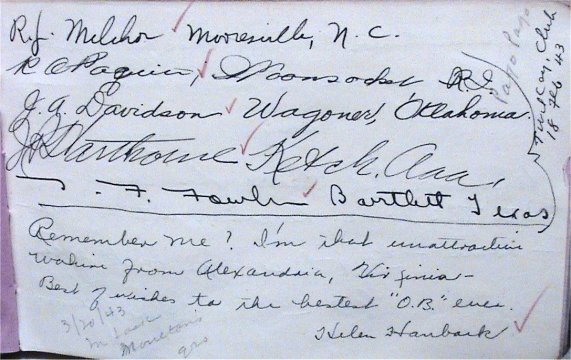 R.J. Melchor Mooresville, N.C.
R O Paquin, Woonsocket RI
J. A. Davidson Wagoner, Oklahoma.
Ketch. Ala.
F. Bartlett Texas
Remember me? I'm that unattractive
wahine from Alexandria, Virginia—
Best of wishes to the bestest "O.B." ever.
Helen Hanback
3/20/43
Pago Pago
Club
18 Feb 43